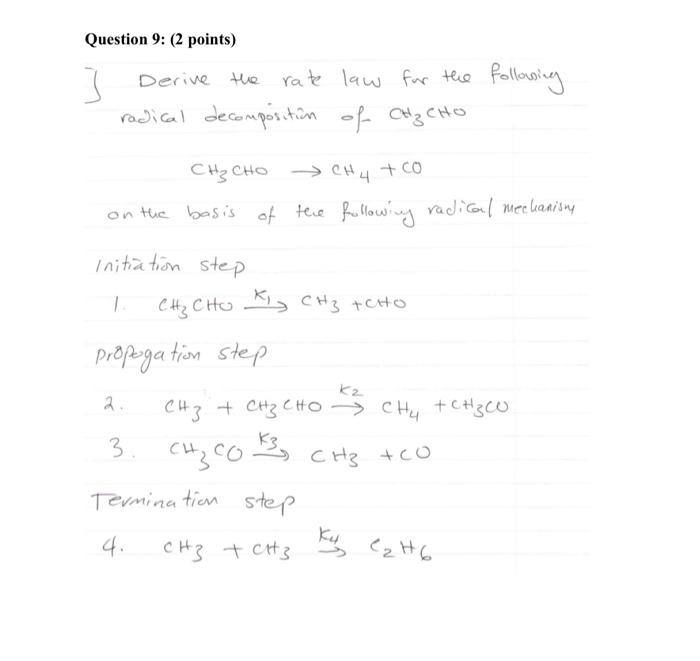 Question 9: (2 points)
] Derive the rate law for the following
radical decomposition of CH3CHO
CH3CHO → CH4 + CO
on the basis of the following radical mechanism
Initiation step
1. CH3CHO K1→ CH3 + CHO
propogation step
2. CH3 + CH3CHO K2→ CH4 + CH3CO
3. CH3CO K3→ CH3 + CO
Termination step
4. CH3 + CH3 K4→ C2H6